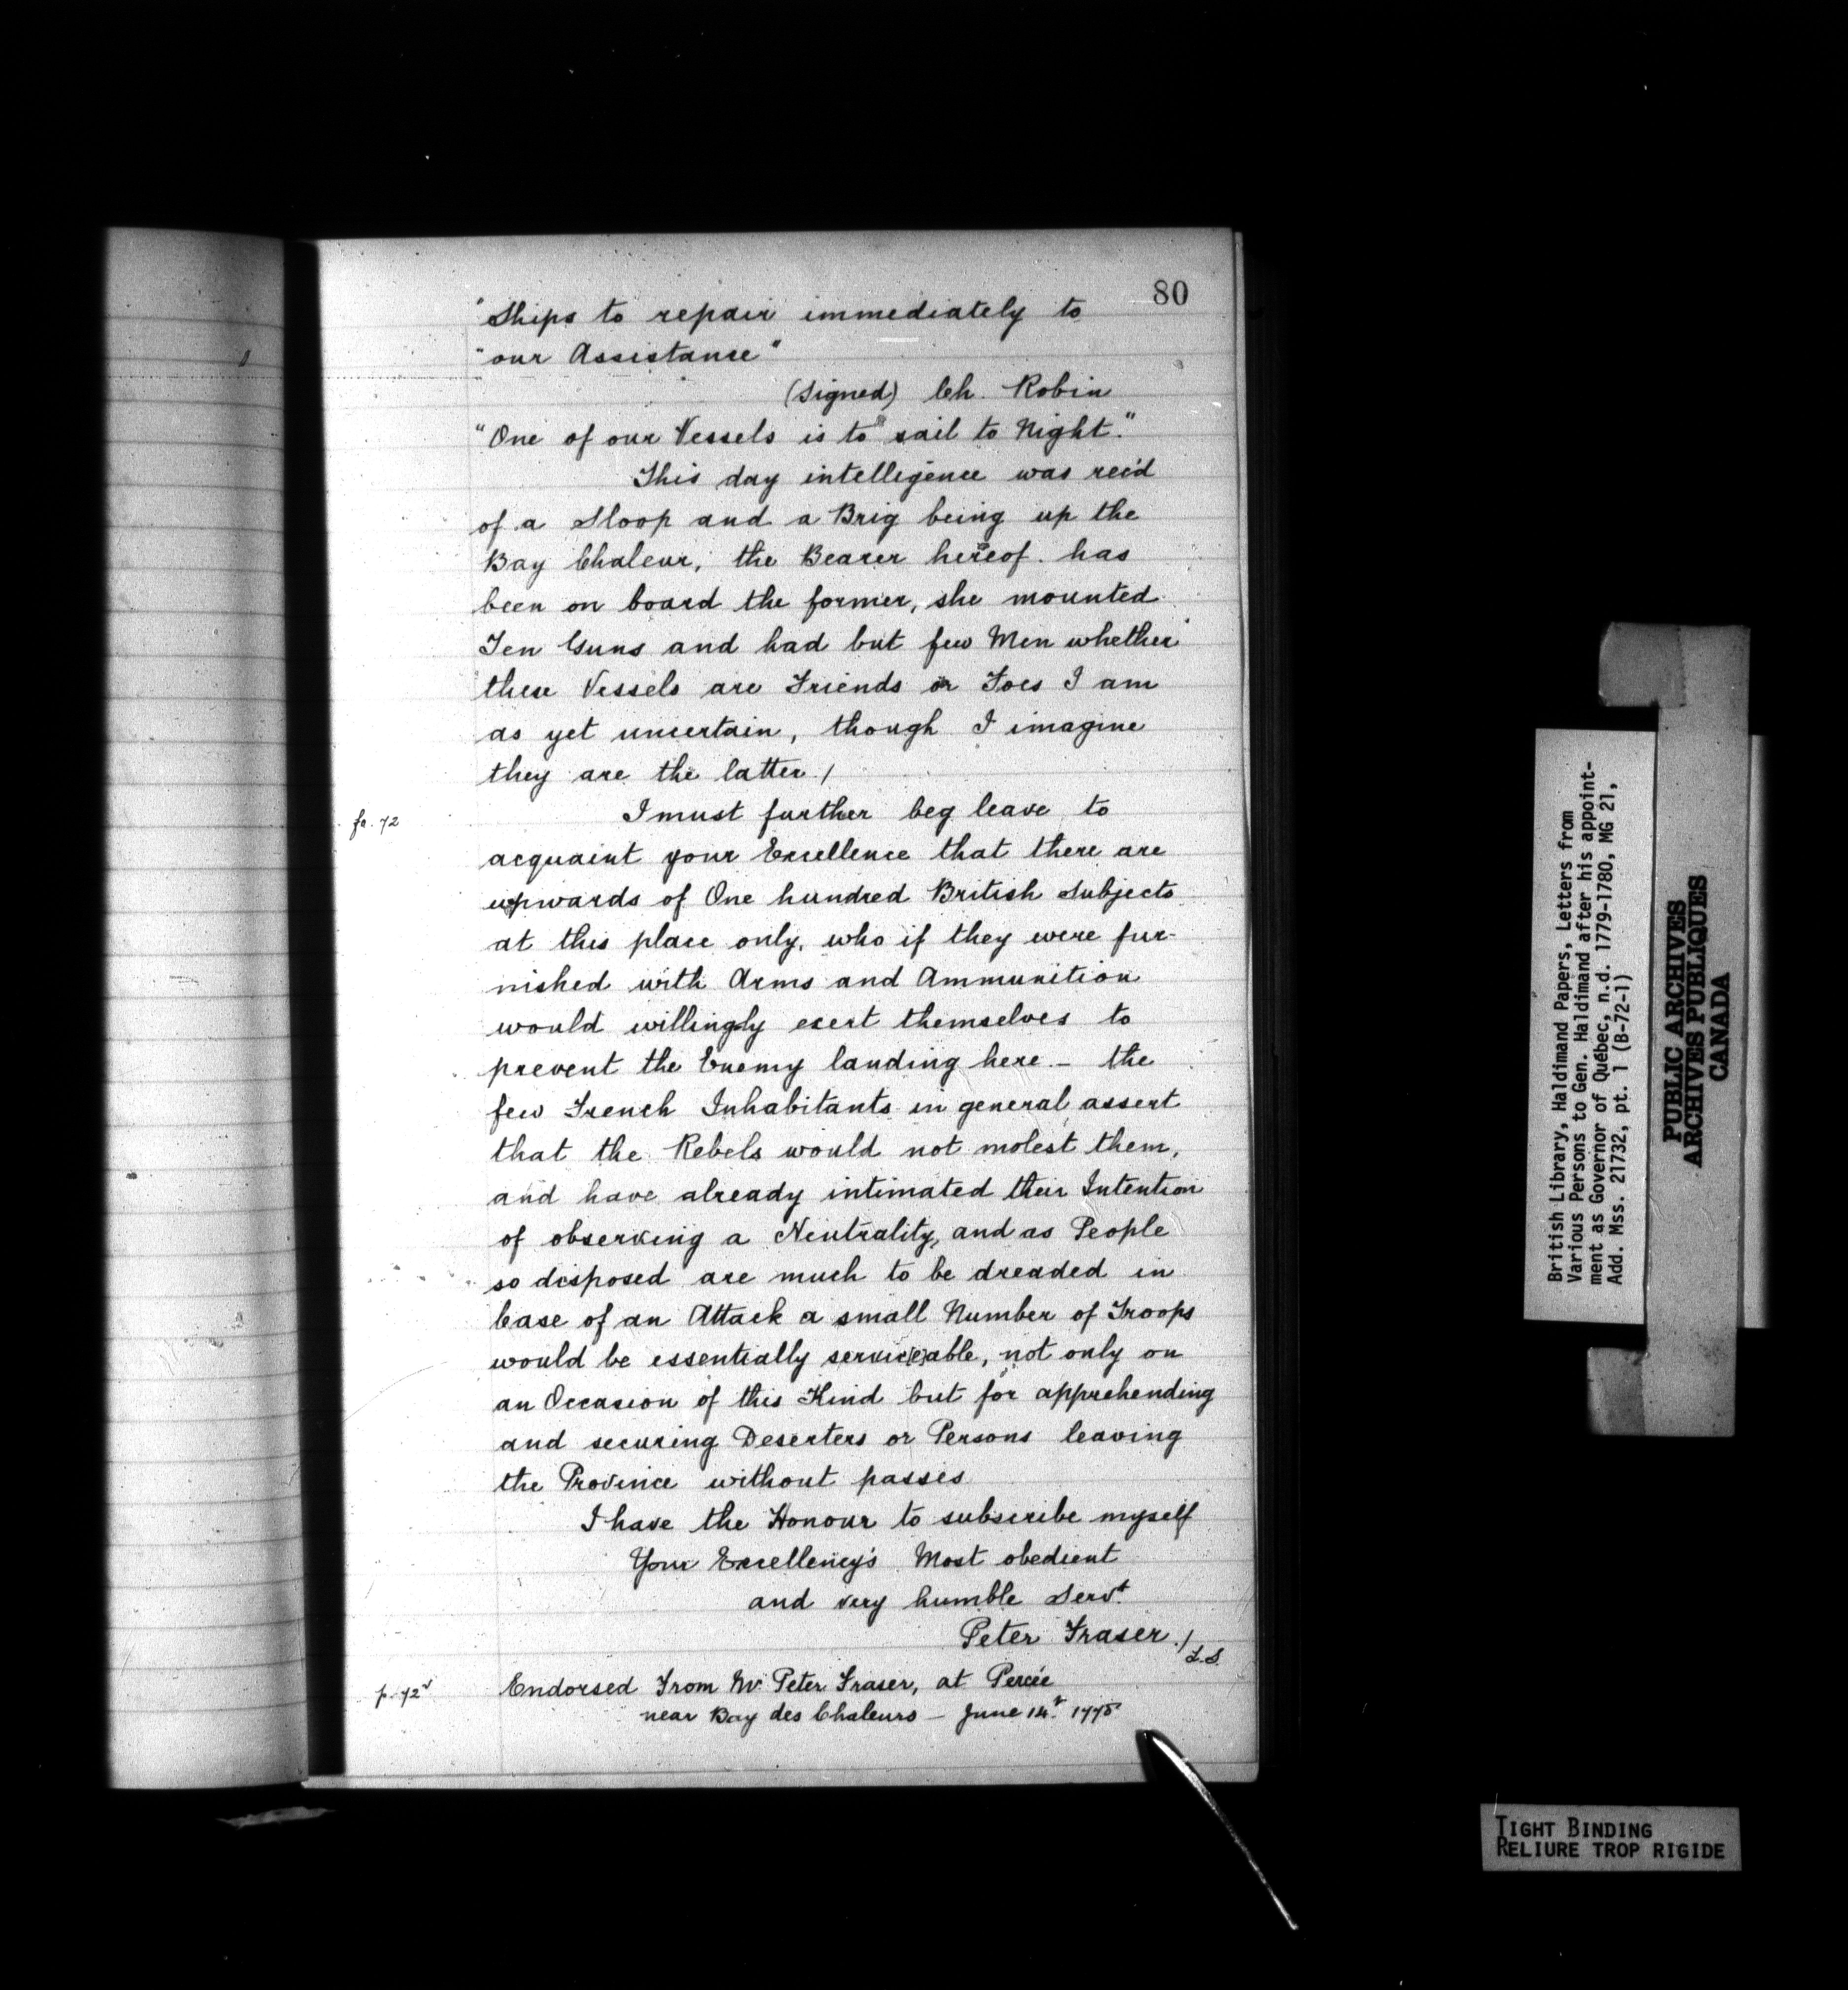 80
"Ships to repair immediately to
"our Assistance"
(Signed) Ch. Robin
"One of our Vessels is to sail to Night."
This day intelligence was rec'd
of a Sloop and a Brig being up the
Bay Chaleur, the Bearer hereof has
been on board the former, she mounted
Ten Guns and had but few Men whether
these Vessels are Friends or Foes I am
as yet uncertain, though I imagine
they are the latter /
fo. 72
I must further beg leave to
acquaint your Excellence that there are
upwards of One hundred British Subjects
at this place only, who if they were fur-
nished with Arms and Ammunition
would willingly exert themselves to
prevent the Enemy landing here. – the
few French Inhabitants in general assert
that the Rebels would not molest them,
and have already intimated their Intention
of observing a Neutrality, and as People
so disposed are much to be dreaded in
Case of an Attack a small Number of Troops
would be essentially servic(e)able, not only on
an Occasion of this Kind but for apprehending
and securing Deserters or Persons leaving
the Province without passes
I have the Honour to subscribe myself
Your Excellency's Most obedient
and very humble Servt.
Peter Fraser ./
L.S.
p. 72v
Endorsed From Mr. Peter Fraser, at Percée
near Bay des Chaleurs – June 14t. 1778
British Library, Haldimand Papers, Letters from
Various Persons to Gen. Haldimand after his appoint-
ment as Governor of Québec, n.d. 1779-1780, MG 21,
Add. Mss. 21732, pt. 1 (B-72-1)
PUBLIC ARCHIVES
ARCHIVES PUBLIQUES
CANADA
TIGHT BINDING
RELIURE TROP RIGIDE